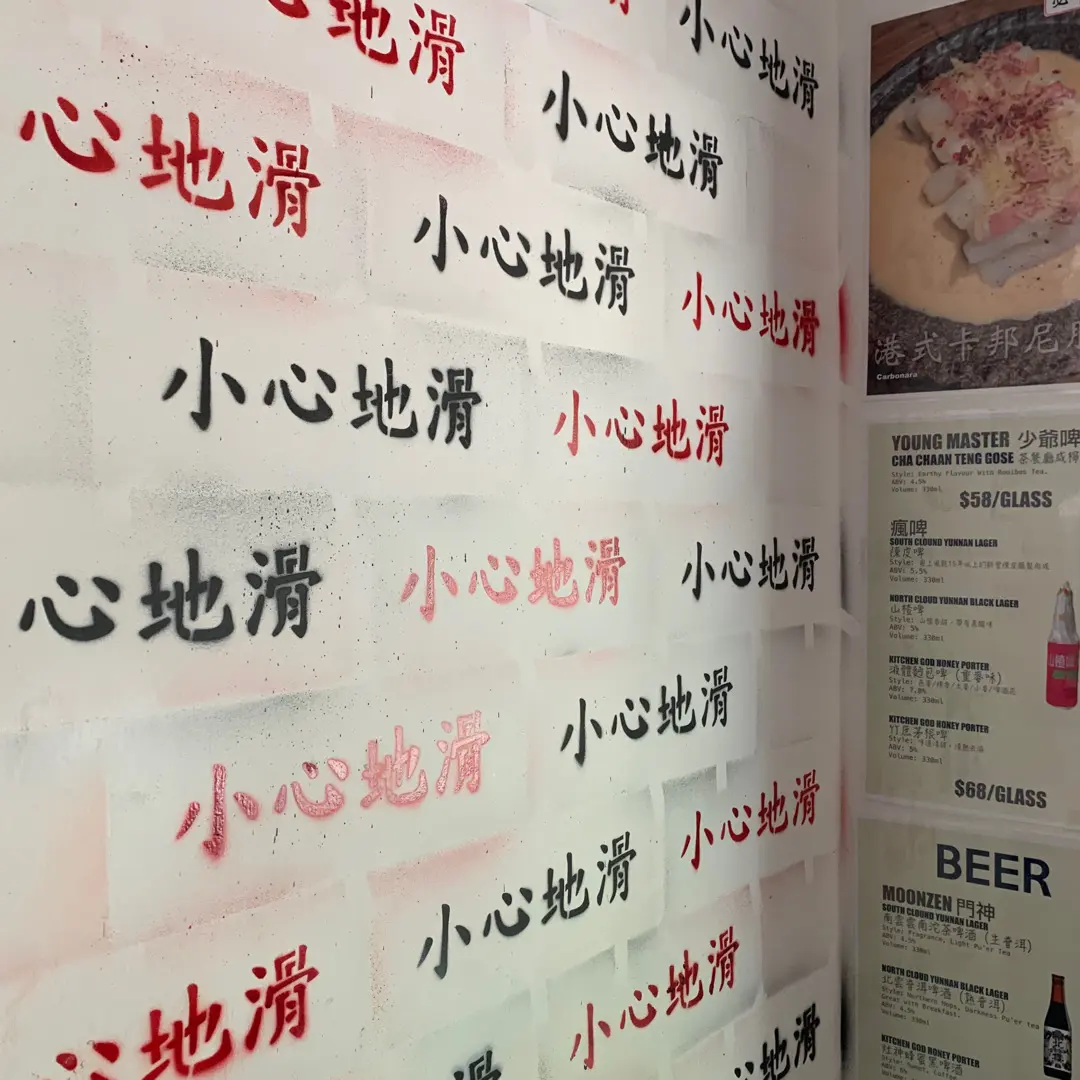 地滑
小心地滑
小心地滑
心地滑
小心地滑
小心地滑
小心地滑
小心地滑
心地滑
小心地滑
小心地滑
小心地滑
小心地滑
小心地滑
小心地滑
心地滑
小心地滑
地滑
滑
港式卡邦尼
Carbonara
YOUNG MASTER 少爺啤
CHA CHAAN TENG GOSE 茶餐廳咸檸
Style: Earthy Flavour With Rooibos Tea.
ABV: 4.5%
Volume: 330ml
$58/GLASS
瘋啤
SOUTH CLOUND YUNNAN LAGER
陳皮啤
ABV: 5.5%
Volume: 330ml
NORTH CLOUD YUNNAN BLACK LAGER
山楂啤
ABV: 5%
Volume: 330ml
KITCHEN GOD HONEY PORTER
液體麵包啤（重麥味）
ABV: 7.8%
Volume: 330ml
KITCHEN GOD HONEY PORTER
竹蔗茅根啤
ABV: 5%
Volume: 330ml
$68/GLASS
BEER
MOONZEN 門神
SOUTH CLOUND YUNNAN LAGER
南雲雲南沱茶啤酒（生普洱）
Style: Fragrance, Light Pu'er Tea
ABV: 4.5%
Volume: 330ml
NORTH CLOUD YUNNAN BLACK LAGER
北雲普洱啤酒（熟普洱）
Style: Northern Hops, Darkness Pu'er tea
Great with Breakfast.
ABV: 4.5%
Volume: 330ml
KITCHEN GOD HONEY PORTER
灶神蜂蜜黑啤酒